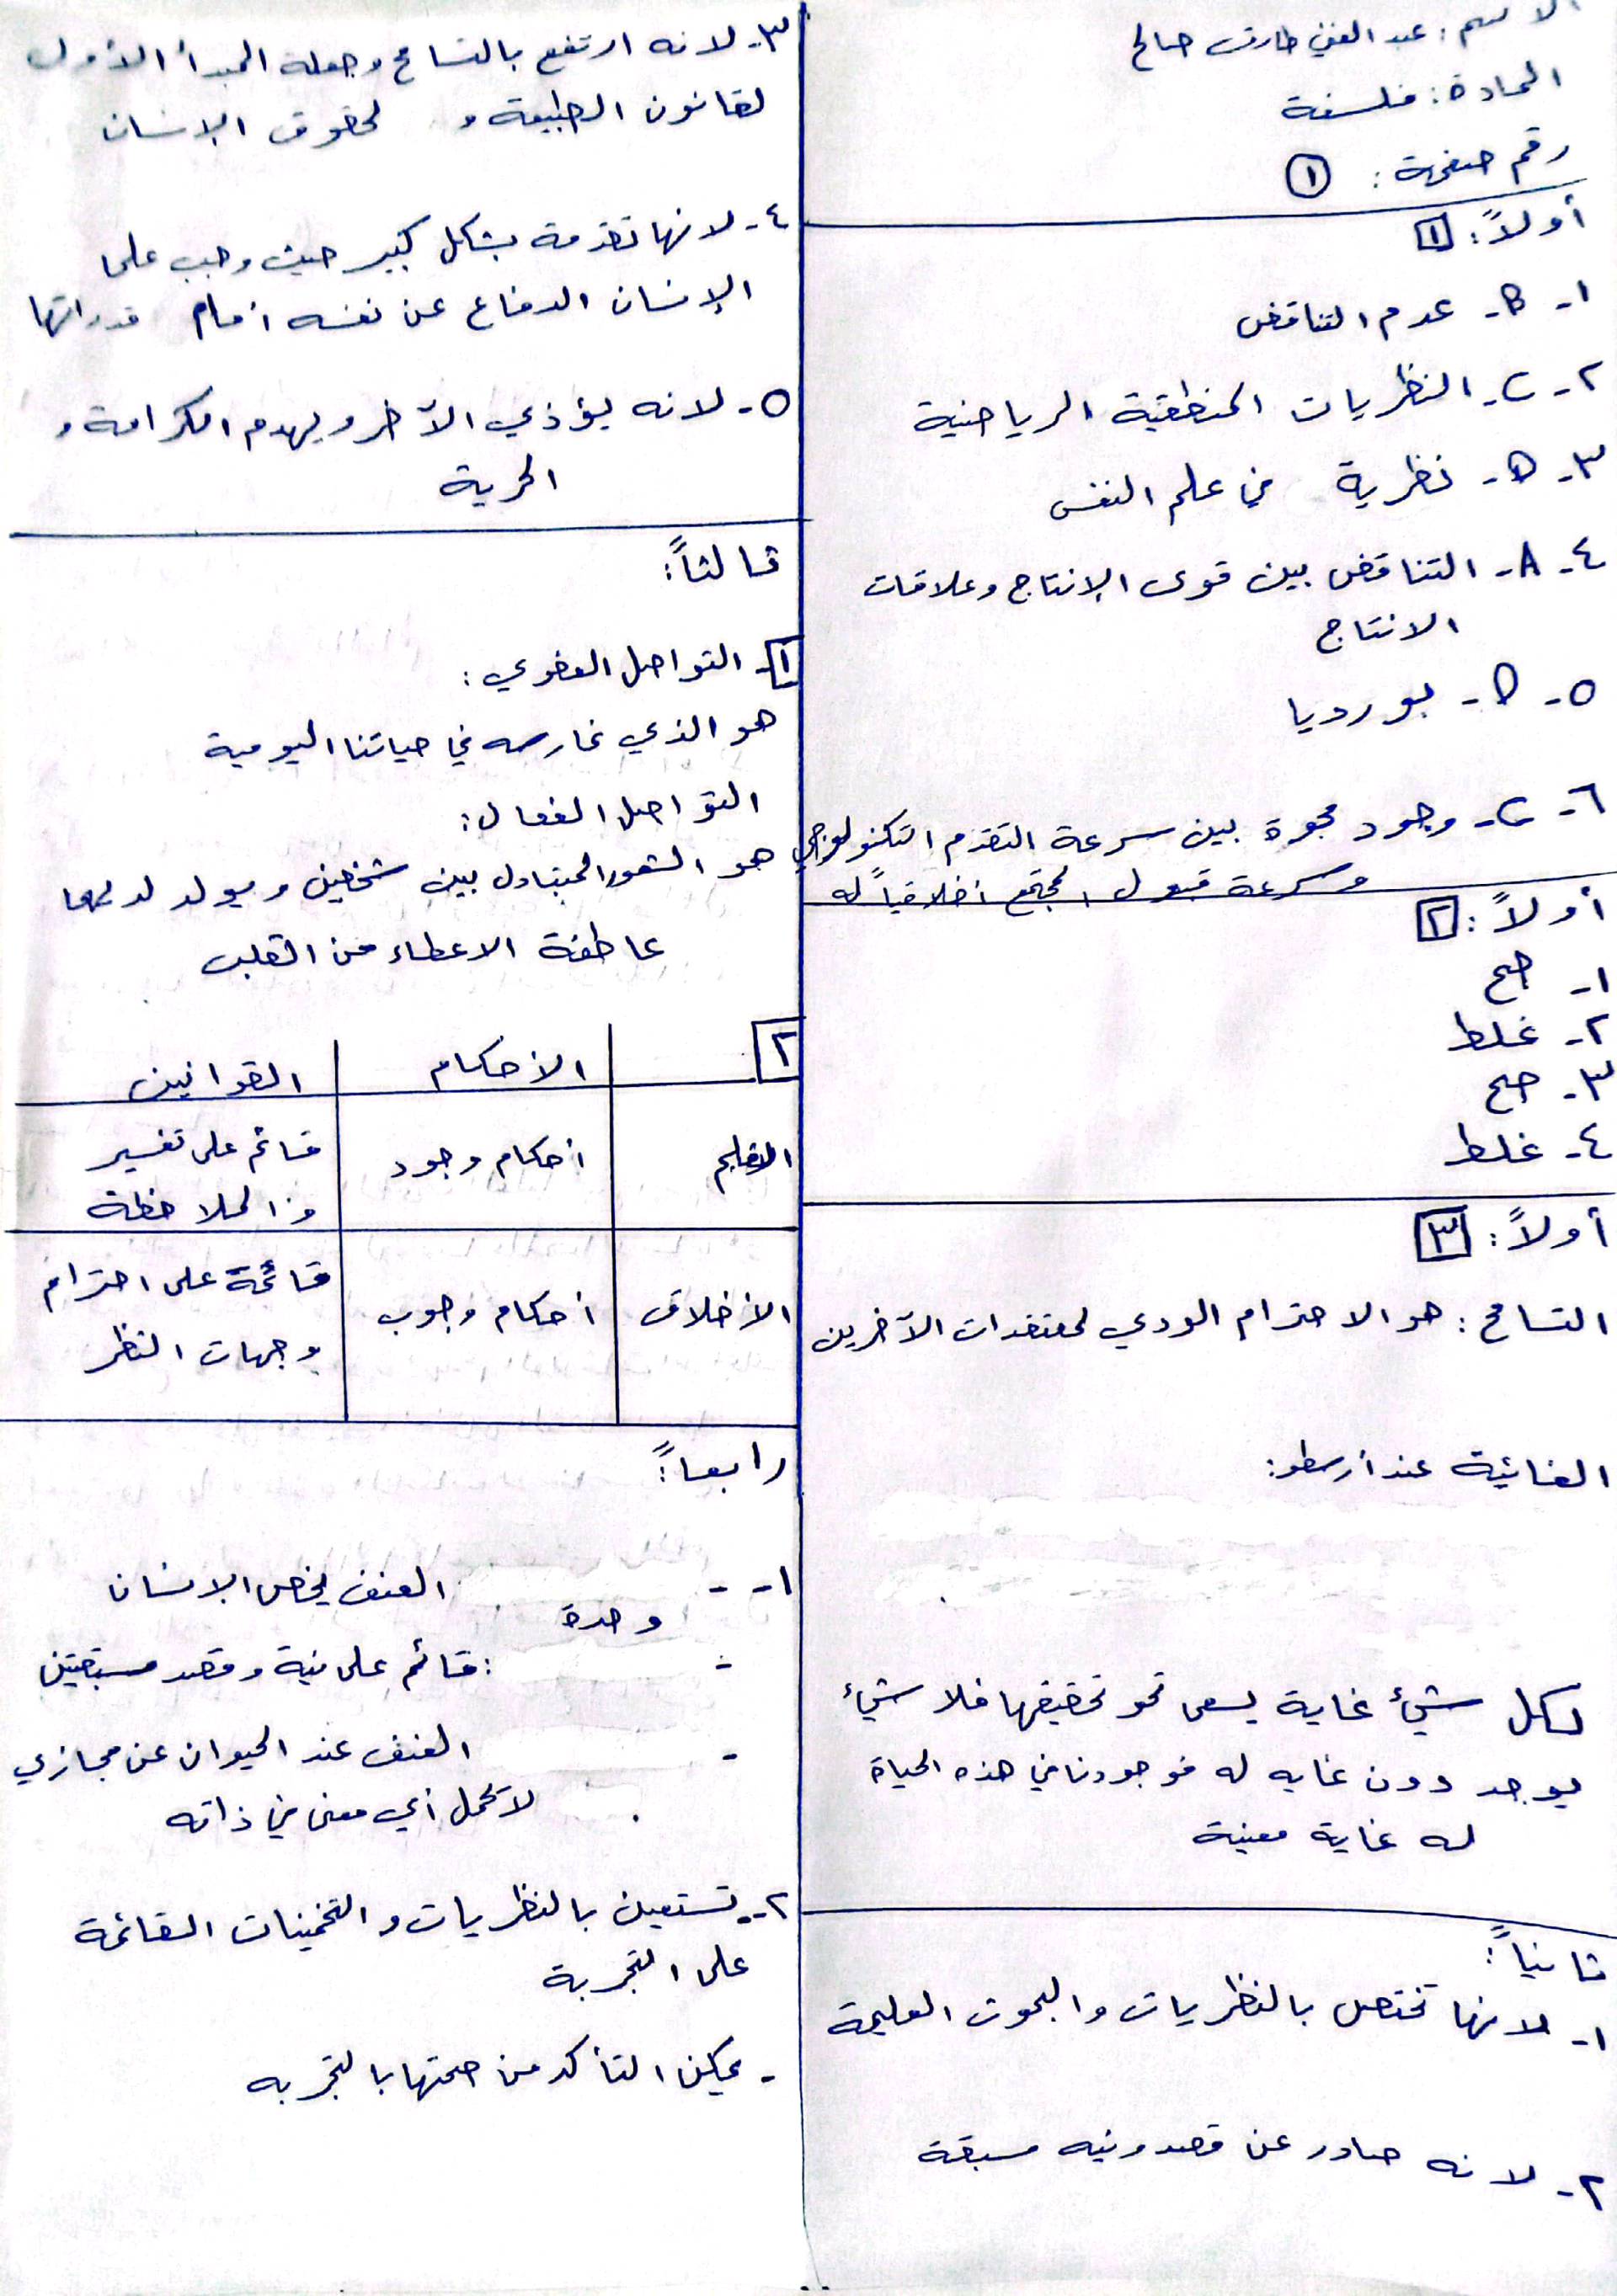 الاسم: عبد الغني طارق صالح
المادة: فلسفة
رقم صفحة: ١
أولاً: ١
١- B- عدم التناقض
٢- C- النظريات المنطقية الرياضية
٣- D- نظرية في علم النفس
٤- A- التناقض بين قوى الإنتاج وعلاقات
الانتاج
٥- D- بورديا
٦- C- وجود فجوة بين سرعة التقدم التكنولوجي
وسرعة قبول المجتمع أخلاقياً له
أولاً: ٢
١- صح
٢- غلط
٣- صح
٤- غلط
أولاً: ٣
التسامح: هو الاحترام الودي لمعتقدات الآخرين
الغائية عند أرسطو:
لكل شيء غاية يسعى نحو تحقيقها فلا شيء
يوجد دون غايه له فوجودنا في هذه الحياة
له غاية معينة
ثانياً:
١- لانها تختص بالنظريات والبحوث العلمية
٢- لانه صادر عن قصد ونيه مسبقة
٣- لانه ارتفع بالتسامح وجعله المبدأ الأول
لقانون الطبيعة و لحقوق الإنسان
٤- لانها تقدمة بشكل كبير حيث وجب على
الإنسان الدفاع عن نفسه أمام قدراتها
٥- لانه يؤذي الآخر ويهدم الكرامة و
الحرية
ثالثاً:
١- التواصل العفوي:
هو الذي نمارسه في حياتنا اليومية
التواصل الفعال:
هو الشعور المتبادل بين شخصين ويولد لديهما
عاطفة الاعطاء من القلب
٢ الأحكام القوانين
العلم أحكام وجود قائم على تفسير
و الملاحظة
الأخلاق أحكام وجوب قائمة على احترام
وجهات النظر
رابعاً:
١- - العنف يخص الإنسان
وحده
- : قائم على نية وقصد مسبقتين
- العنف عند الحيوان عن مجازي
لا تحمل أي معنى في ذاته
٢- تستعين بالنظريات والتخمينات القائمة
على التجربة
- يمكن التأكد من صحتها بالتجربه